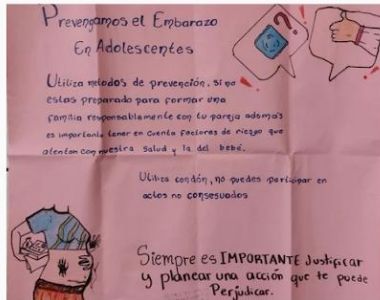 Prevengamos el Embarazo
En Adolescentes
Utiliza metodos de prevención. Si no
estas preparado para formar una
familia responsablemente con tu pareja además
es importante tener en cuenta factores de riezgo que
atentan con nuestra salud y la del bebé.
Utiliza condón, no puedes participar en
actos no consesuados
Siempre es IMPORTANTE Justificar
y planear una acción que te puede
Perjudicar.